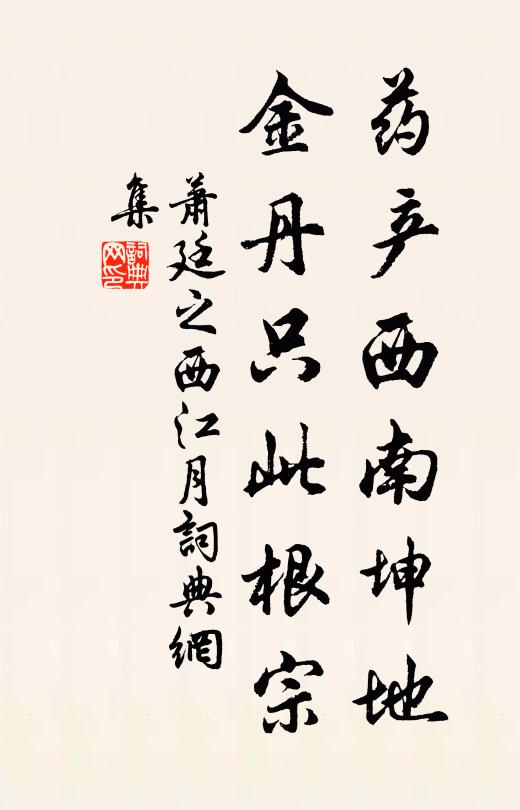 药产西南坤地
金丹只此根宗
萧廷之西江月詞典網
集
詞典网印